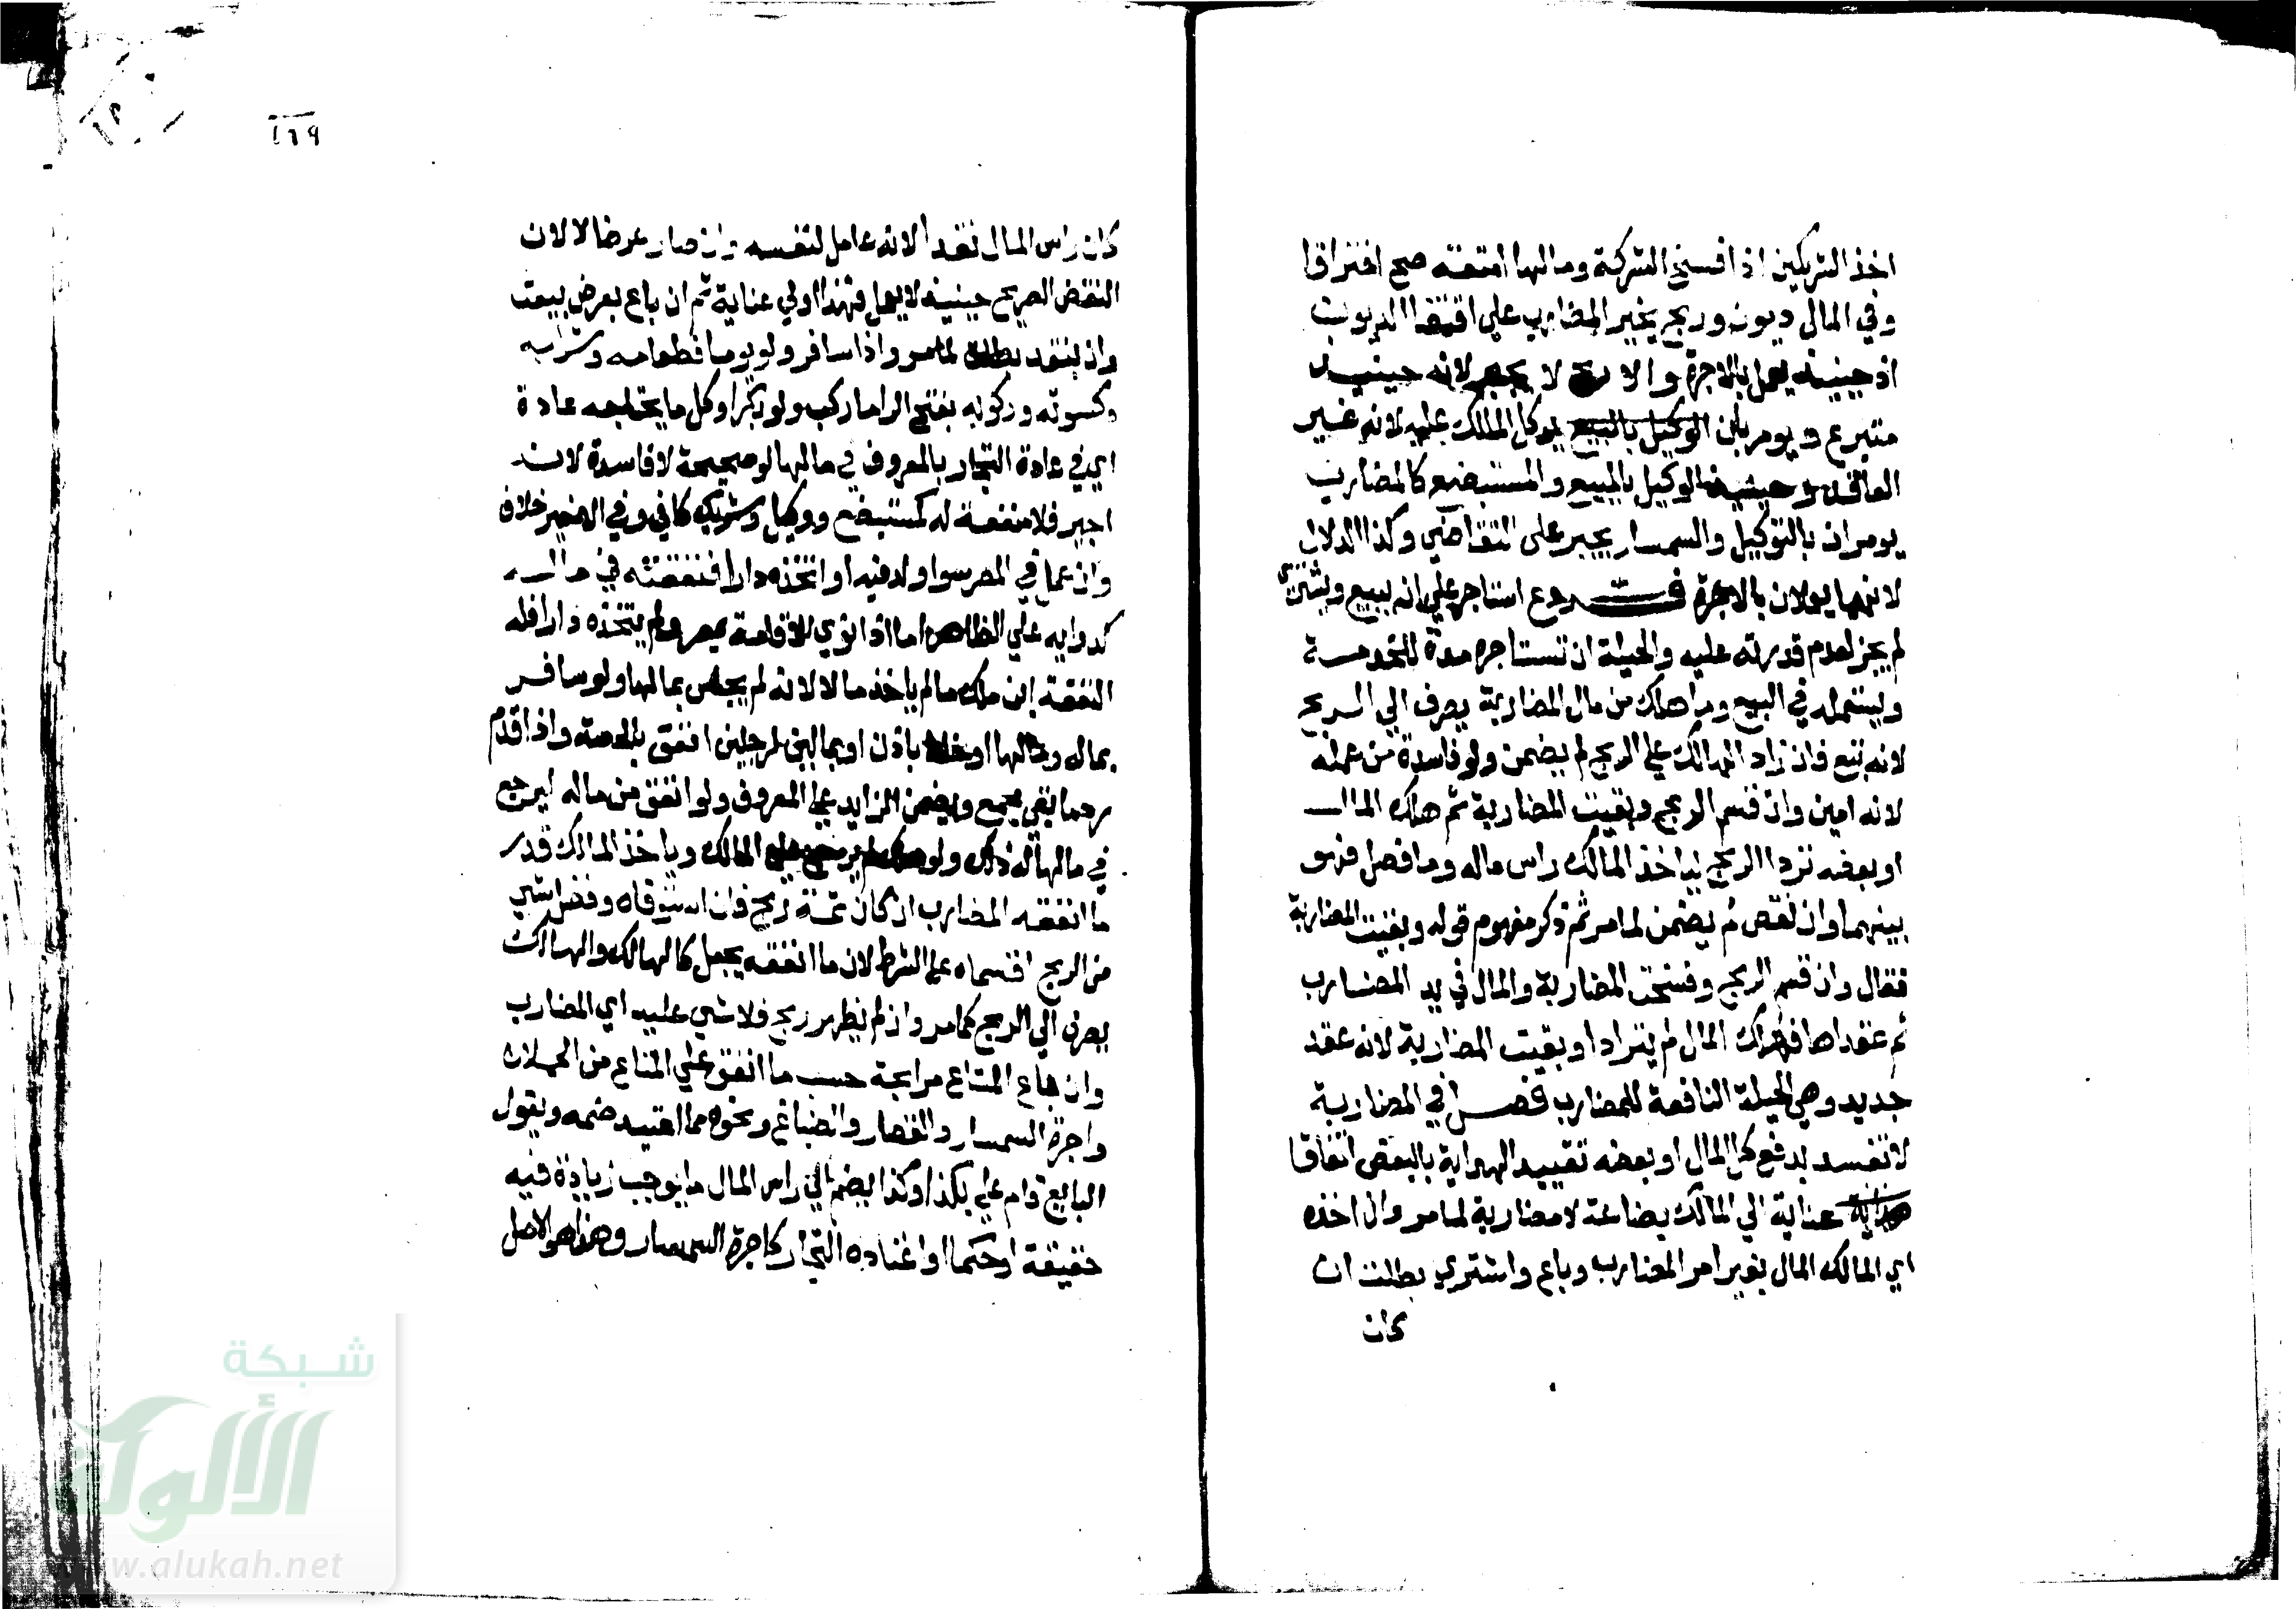 اخذ الشريكين اذا فسخ الشركة ومالها امتعة صح افترقا
وفي المال ديون وربح يجبر المضارب علي اقتضا الديون
اذ حينيذ يعمل بالاجرة والا ربح لا يجبر لانه حينيذ
متبرع ويومر بان يوكل المالك عليه لانه غير
العاقد وحينيذ فالوكيل بالبيع والمستبضع كالمضارب
يومران بالتوكيل والسمسار يجبر على التقاضي وكذا الدلال
لانهما يعملان بالاجرة فرع استاجر علي ان يبيع ويشتري
لم يجز لعدم قدرته عليه والحيلة ان تستاجره مدة للخدمة
ويستعمله في البيع وما هلك من مال المضاربة يصرف الي الربح
لانه تبع فان زاد الهالك علي الربح لم يضمن ولو فاسدة من عمله
لانه امين وان قسم الربح وبقيت المضاربة ثم هلك المال
او بعضه ترادا الربح لياخذ المالك راس ماله وما فضل فهو
بينهما وان نقص لم يضمن لما مر ثم ذكر مفهوم قوله وبقيت المضاربة
فقال وان قسم الربح وفسخت المضاربة والمال في يد المضارب
ثم عقداها فهلك المال لم يترادا وبقيت المضاربة لانه عقد
جديد وهي الحيلة النافعة للمضارب فصل في المضاربة
لا تفسد بدفع كل المال او بعضه تقييد الهداية بالبعض اتفاقا
عناية الي المالك بضاعة لا مضاربة لما مر وان اخذه
اي المالك المال بغير امر المضارب وباع واشتري بطلت ان
كان
١٦٩
كان راس المال نقدا لانه عامل لنفسه وان صار عرضا لا لان
النقض الصريح حينيذ لا يعمل فهذا اولي عناية ثم ان باع بعرض بيعت
وان بنقد بطلت لما مر واذا سافر ولو يوما فطعامه وشرابه
وكسوته وركوبه بفتح الرا ما يركب ولو بكرا وكل ما يحتاجه عادة
اي في عادة التجار بالمعروف في مالها لو صحيحة لا فاسدة لانه
اجير فلا نفقة له كمستبضع ووكيل وشريك كافي وفي الاخير خلاف
وان عمل في المصر سوا ولد فيه او اتخذه دارا فنفقته في ماله
كدوايه علي الظاهر اما اذا نوي الاقامة بمصر ولم يتخذه دارا فله
النفقة ابن ملك ما لم ياخذ مالا لانه لم يحتبس بمالها ولو سافر
بماله ومالها او خلط باذن او بمالين لرجلين انفق بالحصة واذا قدم
رد ما بقي مجمع ويضمن الزايد علي المعروف ولو انفق من ماله ليرجع
في مالها له ذلك ولو هلك لم يرجع علي المالك وياخذ المالك قدر
ما انفقه المضارب ان كان ثمة ربح فان استوفاه وفضل شي
من الربح اقتسماه علي الشرط لان ما انفقه يجعل كالهالك والهالك
يصرف الي الربح كما مر وان لم يظهر ربح فلا شي عليه اي المضارب
وان باع المتاع مرابحة حسب ما انفق علي المتاع من الحملان
واجرة السمسار والقصار والصباغ ونحوه مما اعتيد ضمه ويقول
البايع قام علي بكذا وكذا يضم الي راس المال ما يوجب زيادة فيه
حقيقة او حكما او اعتاده التجار كاجرة السمسار وهذا هو الاصل
شبكة
الألوكة
www.alukah.net